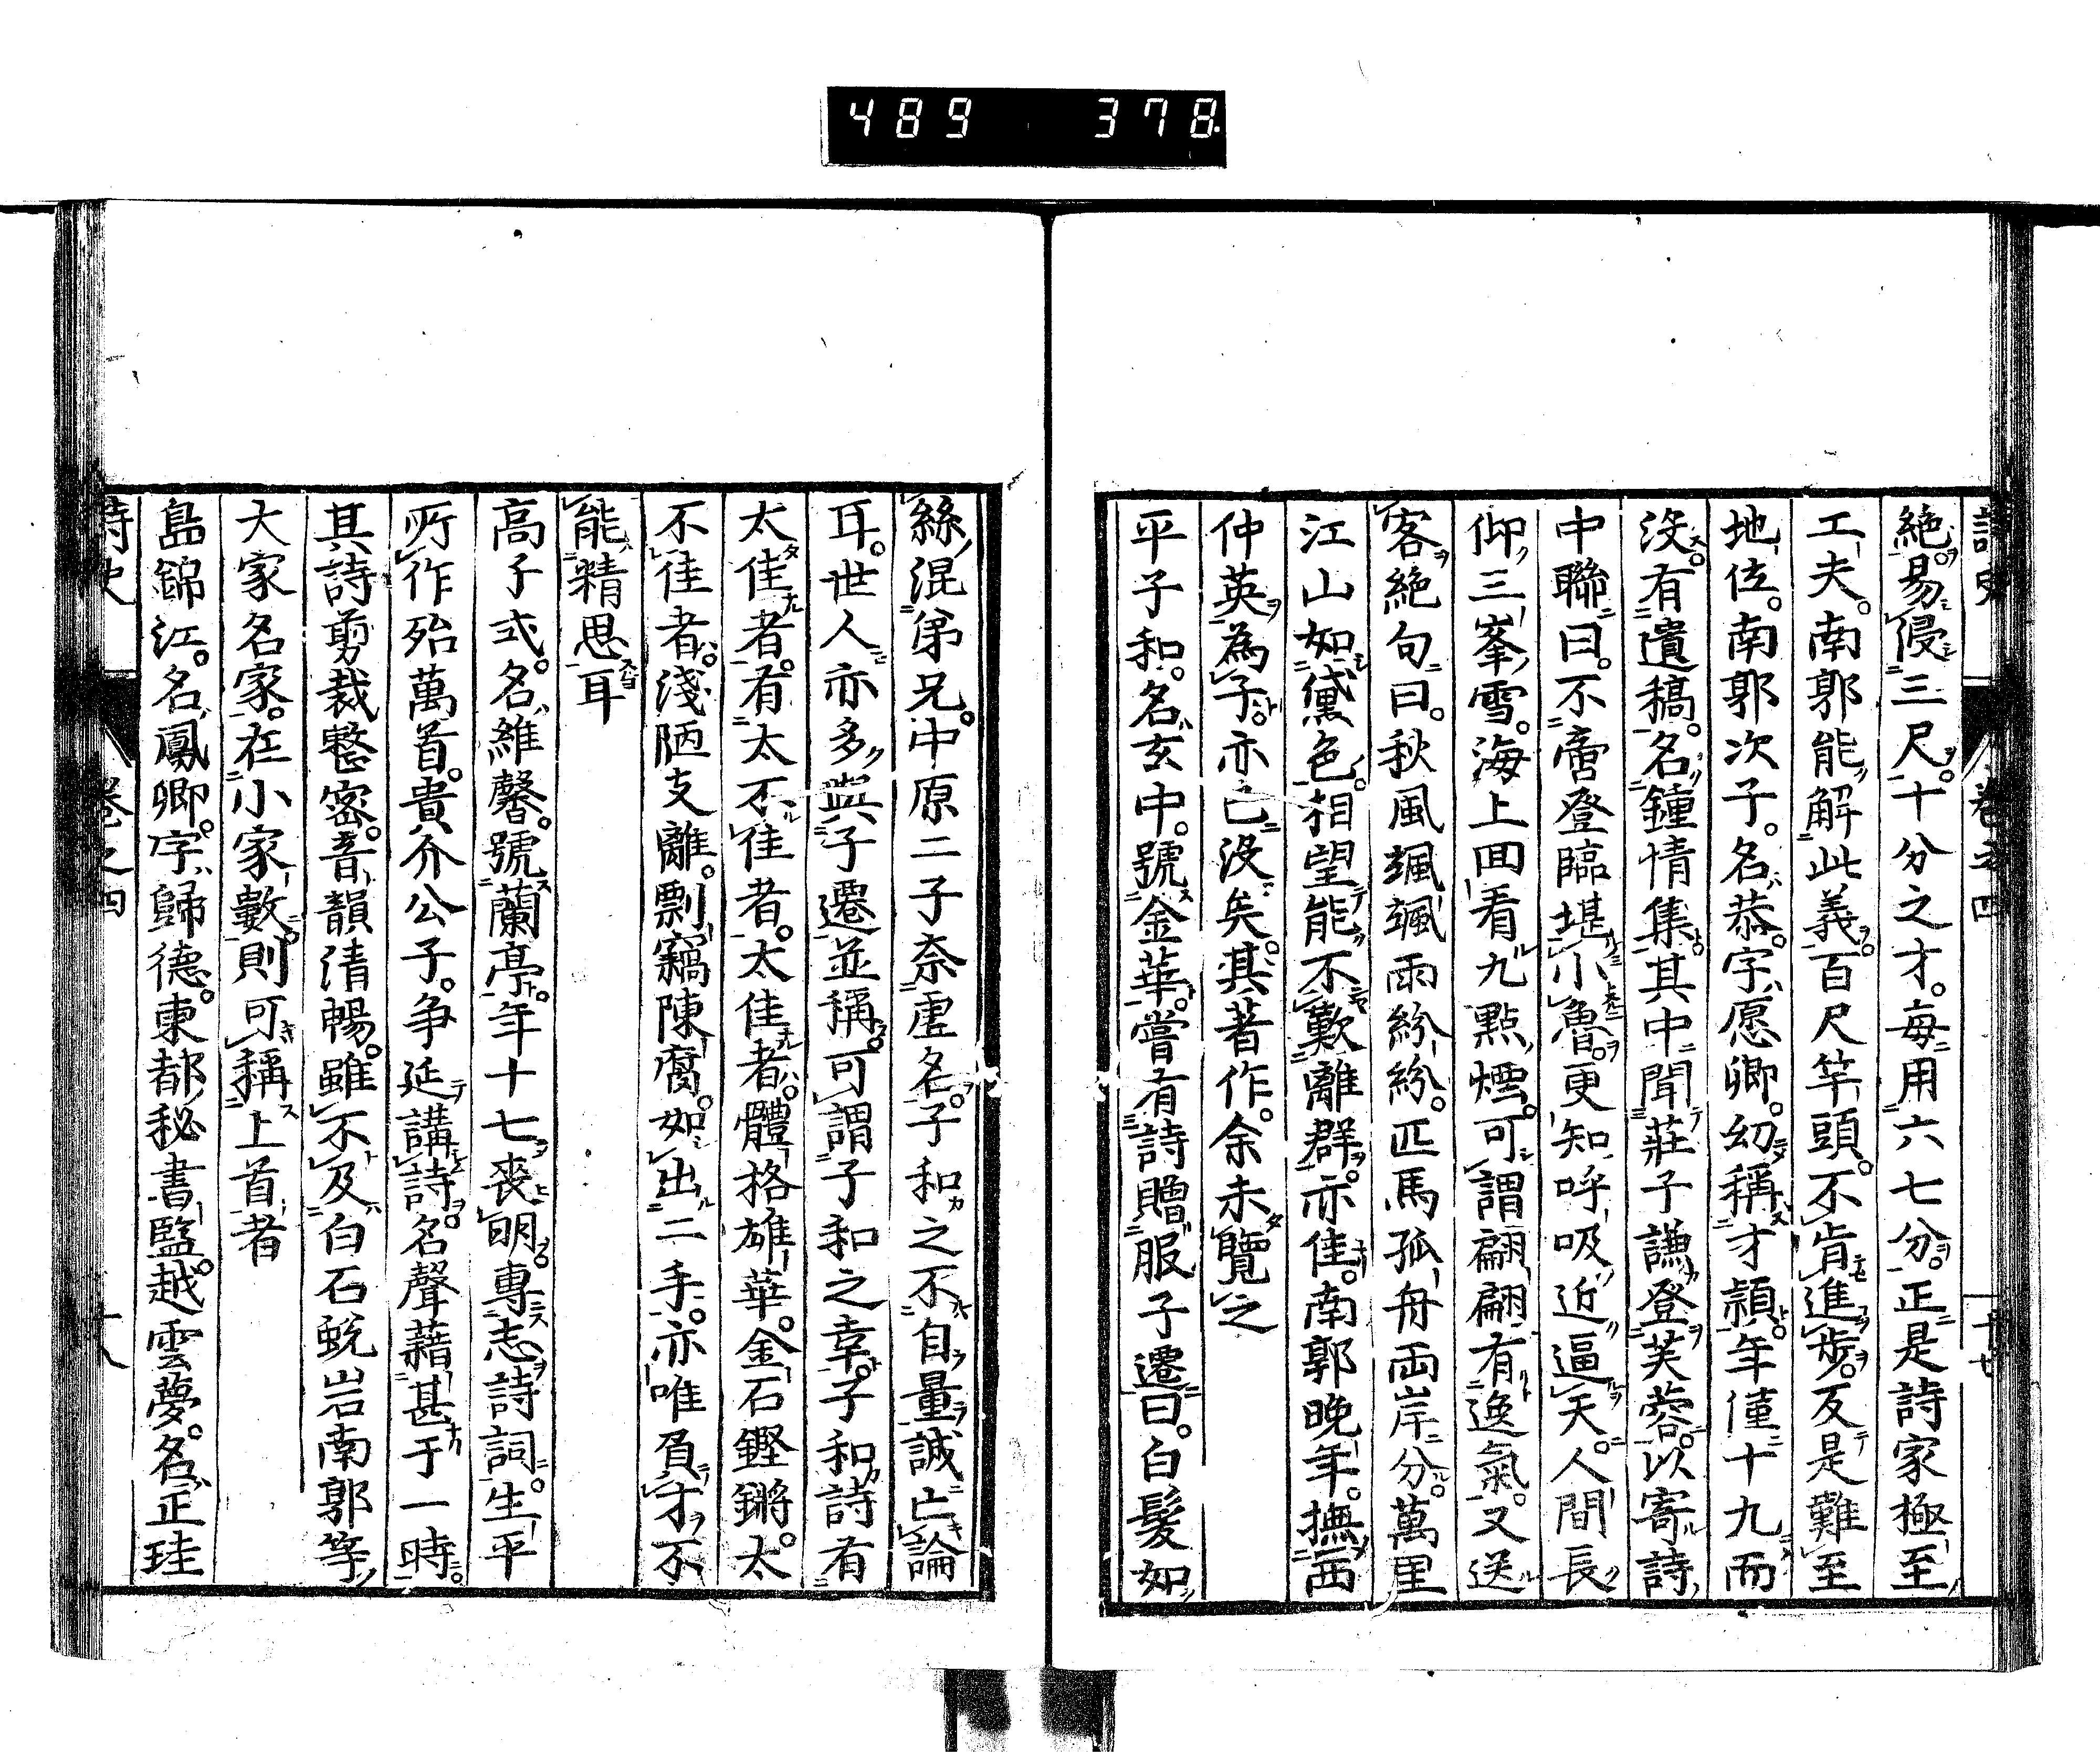 489 378
絶易侵三尺。十分之才。每用六七分。正是詩家極至
工夫。南郭能解此義。百尺竿頭。不肯進歩。反是難至
地位。南郭次子。名恭。字愿卿。幼稱才穎。年僅十九而
没。有遺稿。名鍾情集。其中聞莊子謙登芙蓉。以寄詩
中聯曰。不啻登臨堪小魯。更知呼吸近逼天。人間長
仰三峯雪。海上回看九點煙。可謂翩翩有逸氣。又送
客絶句曰。秋風颯颯雨紛紛。匹馬孤舟両岸分。萬里
江山如黛色。相望能不歎離群。亦佳。南郭晩年。撫西
仲英為子。亦已没矣。其著作。余未覽之
平子和。名玄中。號金華。嘗有詩贈服子遷曰。白髪如
絲混弟兄。中原二子奈虚名。子和之不自量。誠亡論
耳。世人亦多與子遷並稱。可謂子和之幸。子和詩有
太佳者。有太不佳者。太佳者。體格雄華。金石鏗鏘。太
不佳者。淺陋支離。剽竊陳腐。如出二手。亦唯負才不
能精思耳
高子式。名維馨。號蘭亭。年十七喪明。專志詩詞。生平
所作殆萬首。貴介公子。争延講詩。名聲藉甚于一時。
其詩剪裁整密。音韻清暢。雖不及白石蛻岩南郭等
大家名家。在小家數。則可稱上首者
島錦江。名鳳卿。字歸德。東都秘書監。越雲夢。名正珪
詩史 卷之四